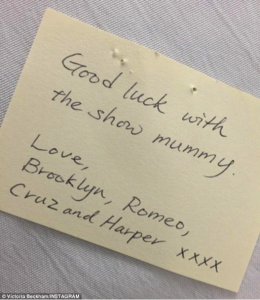 Good luck with
the show mummy.
Love,
Brooklyn, Romeo,
Cruz and Harper xxxx
© Victoria Beckham/INSTAGRAM